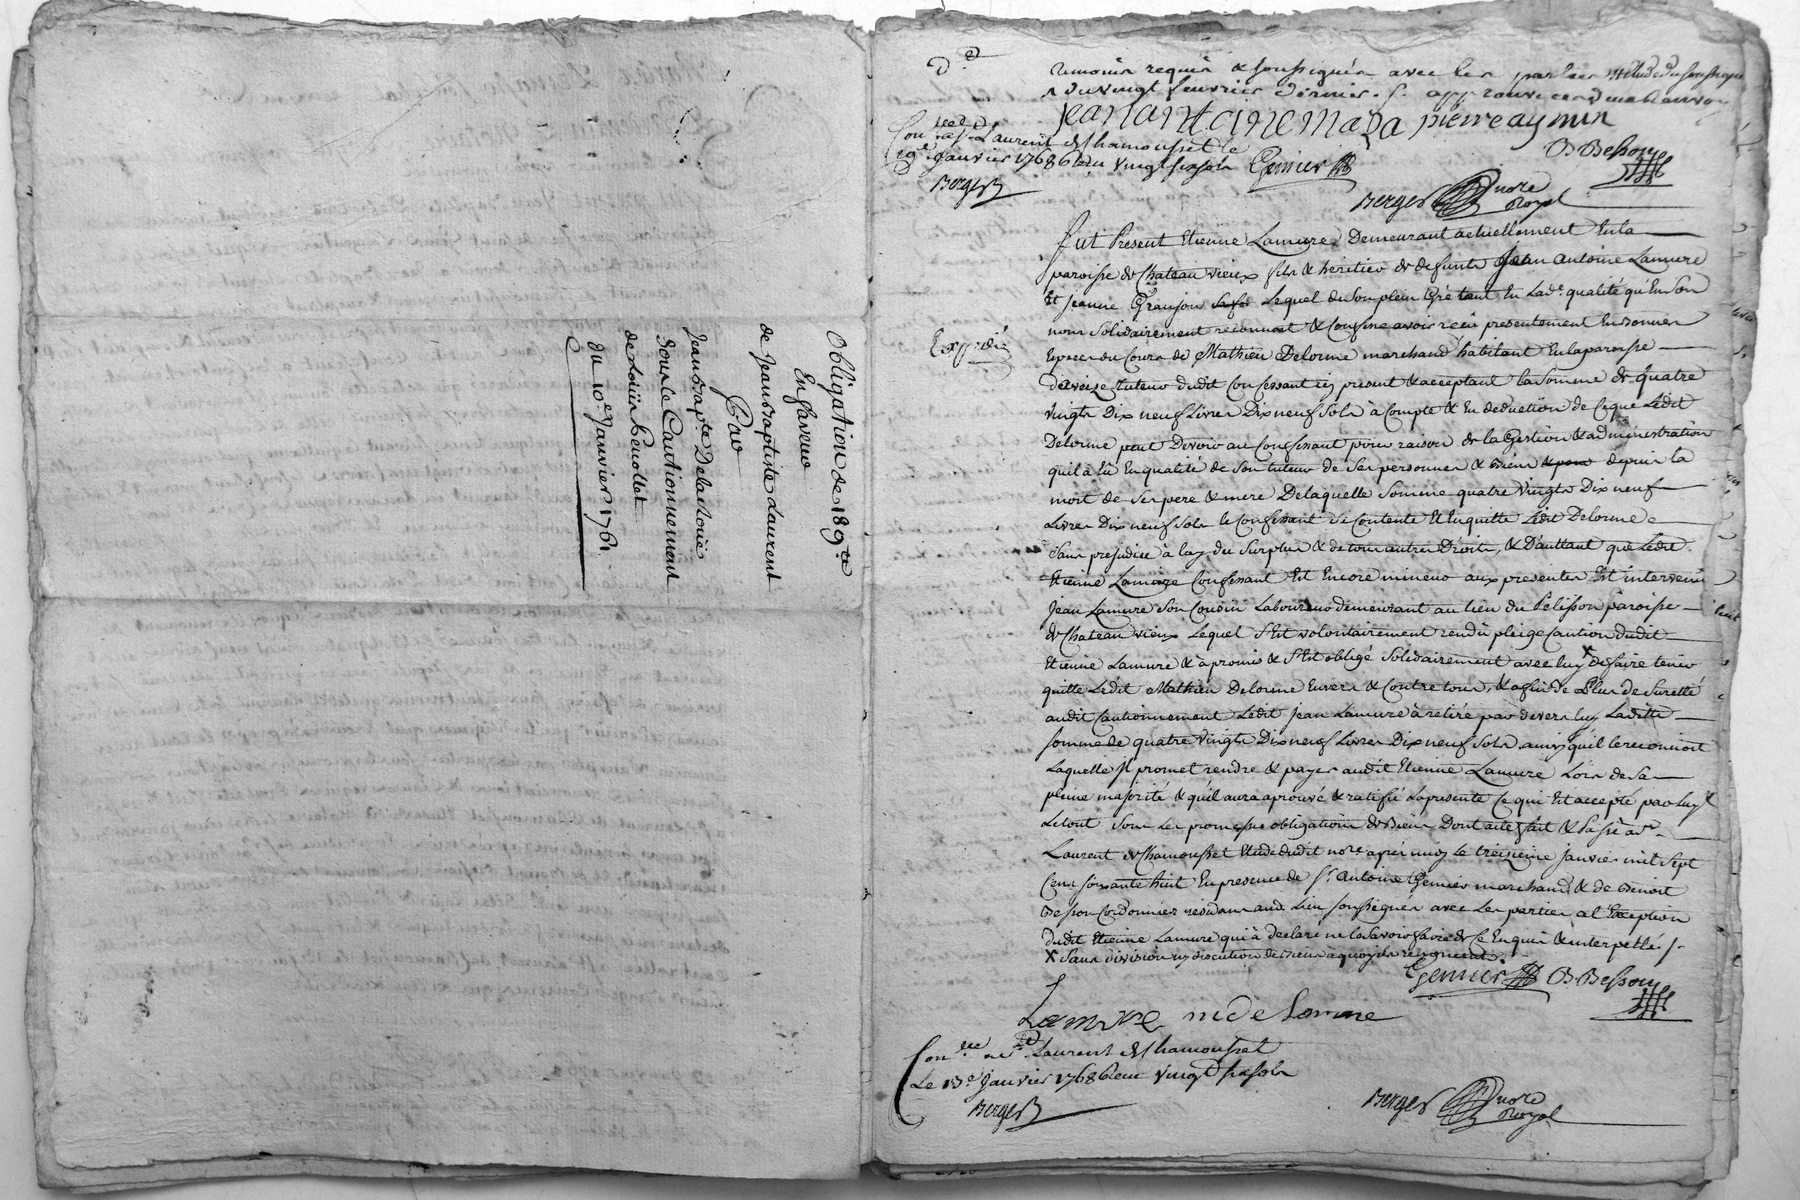 Obligation de 189lt
En faveur
de Jean Baptiste Laurent
Par
Jean Bapte Delanoüe
Sous le Cautionnement
de Loüis benottet
du 10e Janvier 1761.
temoins requis & soussignés avec les parties
du vingt feuvrier dernier approuvé
Jean antoine maza pierre aymin
Conlée a St Laurent de Chamousset le
19e Janvier 1768 Reçu vingt six sols Genier B Besson
Berger
Berger nore Royal
Expedié
fut Present Etienne Lamure Demeurant actuellement En la
paroisse de Chateau vieux fils & héritier de defunts Jean Antoine Lamure
Et Jeanne Granjon Lequel de Son plein Gré tant En Lade qualité qu'En Son
nom Solidairement reconnoit & Confesse avoir reçü presentement En Bonnes
Especes du Cours de Mathieu Delorme marchand habitant En la paroisse
d'aveize Tuteur dudit Confessant icy present & acceptant la Somme de quatre
vingts Dix neuf Livres Dix neuf Sols à Compte & En deduction de Ce que Ledit
Delorme peut Devoir au Confessant pour raison de la Gestion & administration
qu'il à Eü En qualité de Son tuteur de Ses personnes & Biens depuis la
mort de Ses pere & mere De laquelle Somme quatre Vingts Dix neuf
Livres Dix neuf Sols le Confessant Se Contente Et En quitte Ledit Delorme
Sans prejudice à luy du Surplus & de tous autres Droits, & D'autant que Ledit
Etienne Lamure Confessant Est Encore mineur aux presentes Est intervenu
Jean Lamure Son Cousin Laboureur demeurant au lieu du Pelisson paroisse
de Chateau vieux Lequel S'Est volontairement rendu pleige Caution dudit
Etienne Lamure & à promis & S'Est obligé Solidairement avec luy X De faire tenir
quitte Ledit Mathieu Delorme Envers & Contre tous, & afin de Plus de Suretté
audit Cautionnement Ledit Jean Lamure à retiré par devers luy Laditte
Somme de quatre Vingts Dix neuf Livres Dix neuf Sols ainsy qu'il le reconnoit
Laquelle Jl promet rendre & payer audit Etienne Lamure Lors de Sa
pleine majorité & qu'il aura aprouvé & ratifié La presente Ce qui Est accepté par luy
Le tout Sous Les promesses obligations de Biens Dont acte fait & Passé a St
Laurent de Chamousset Etude dudit nore après midy le treizieme Janvier mil Sept
Cens Soixante huit En presence de Sr Antoine Genier marchand & de Benoit
Besson Cordonnier residans aud. Lieu Soussignés avec Les parties a l'Exception
dudit Etienne Lamure qui à declaré ne le Savoir faire de Ce Enquis & interpellé.
X Sans division ny discution de Biens à quoy ils renoncent.
Genier B Besson
Lamure m delorme
Conlée a St Laurent de Chamousset
Le 13e Janvier 1768 Reçu vingt six sols
Berger
Berger nore Royal